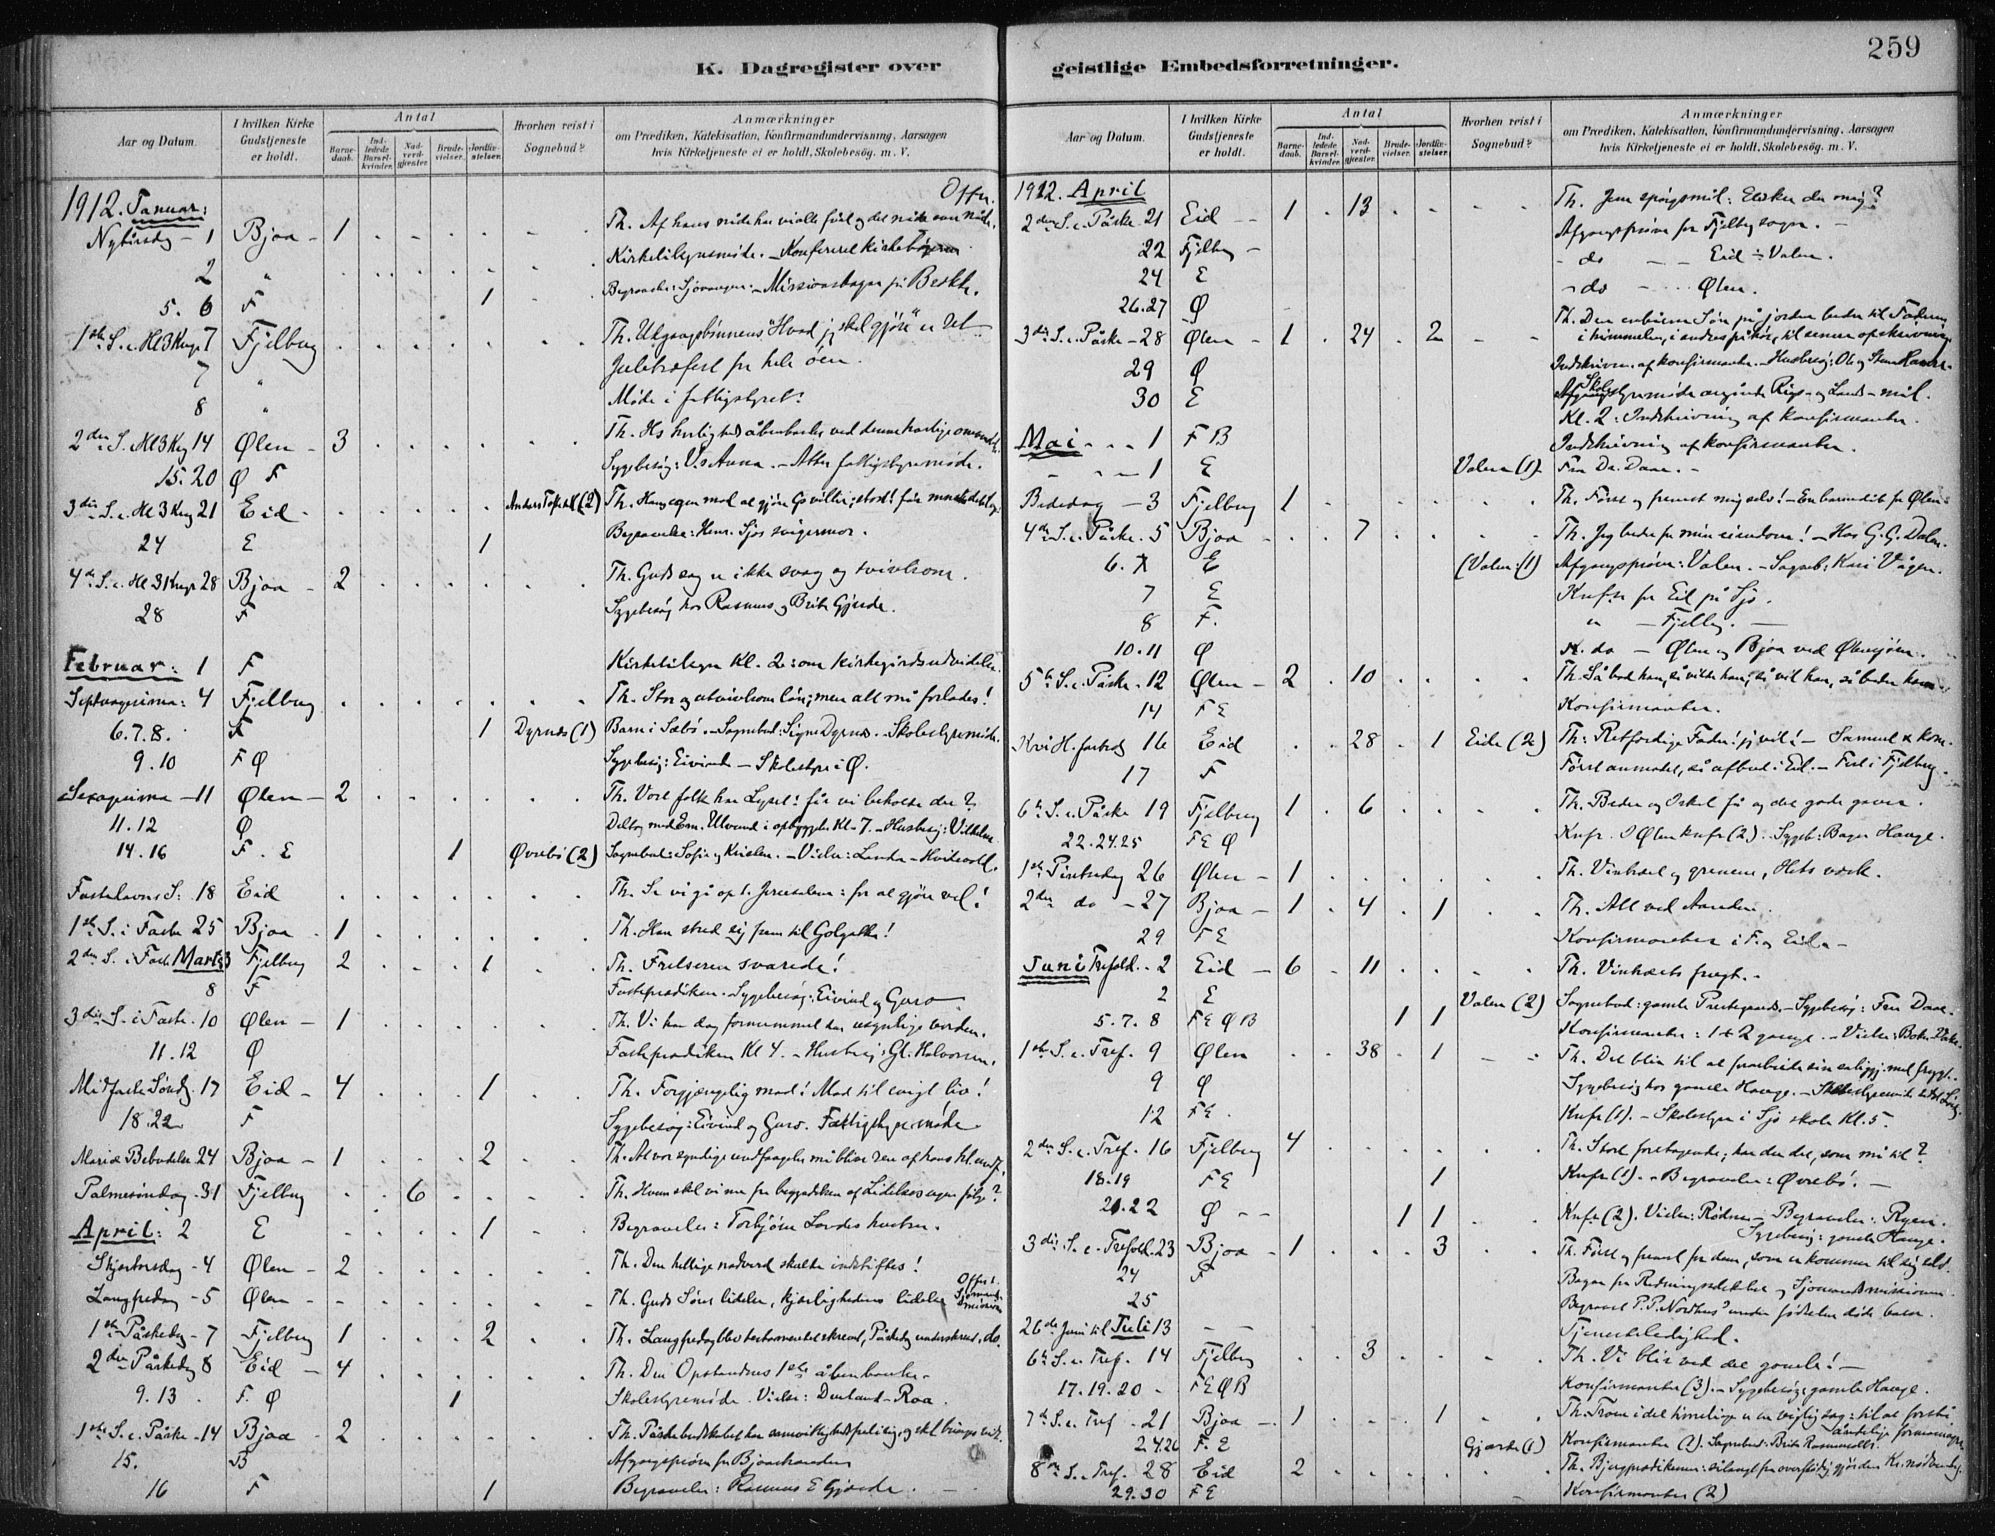 259
K. Dagregister over
Aar og Datum.
I hvilken Kirke Gudstjeneste er holdt.
Antal
Barnedaab.
Indledede Barselkvinder.
Nadverdgjester
Brudevielser.
Jordfæstelser.
Hvorhen reist i Sognebud?
Anmærkninger
om Prædiken, Katekisation, Konfirmandundervisning, Aarsagen
hvis Kirketjeneste ei er holdt, Skolebesøg. m. V.
1912. Januar: Offr.
Nytårsdg - 1 Bjoa - 1 Th. Af hans nåde har vi alle fået og det nåde over nåde.
2 " Kirketilsynsmøde. - Konfereret kirkebøgerne
5. 6 F 1 Missionsbøger på Bekke.
1ste S. e. Hl 3 Kng. 7 Fjelberg Th. Udgangsbønnens "Hvad jeg skal gjøre" er ret
7 " Juletræfest for hele öen.
8 " Møde i fattigstyret.
2den S. Hl 3 Kng 14 Ølen - 3 Th. Hs herlighed åbenbares ved denne
15. 20 Ø F Sygebesøg: Anna. - Atter fattigstyremøde.
3die S. e. Hl 3 Kng 21 Eid - (2) Th.
24 E 1 Begravelse: Henr. Sjös svigermor.
4de S. e. Hl 3 Kng 28 Bjoa - 2 Th. Guds sag er ikke svag og tvivlsom.
28 F Sygebesøg hos Rasmus og Brita Gjerde.
Februar: 1 F Kirketilsyn Kl. 2: om kirkegårdsudvidelse.
Septuagesima: 4 Fjelberg Th. Stor og utvivlsom lön; men alt må forlades!
6. 7. 8. F 1 Dyrnes (1) Barn i Sæbö. - Sognebud: Signe Dyrnes. - Skolestyremöde.
9. 10 F Ø Sygebesög: Eivind - Skolestyre i Ø.
Sexagesima - 11 Ølen - 2 Th. Vort folk har Lyset: får vi beholde det?
11. 12 Ø Deltog med Em. Ulvund i opbyggelse Kl. 7. - Husbesøg: Vilhelm
14. 16 F. E 1 Øvrebö (2) Sognebud: Sofie og Kristen. - Vielse: Landa - Hvidevold.
Fastelavns S: 18 Eid Th. Se vi gå op t. Jerusalem: for at gjöre vel!
1ste S. i Faste 25 Bjoa - 1 Th. Han stred sig frem til Golgatha!
2den S. i Faste Marts 3 Fjelberg 2 1 Th. Frelseren svarede!
8 F Fasteprædiken. Sygebesög: Eivind og Guro
3die S. i Faste. 10 Ølen - 1 Th. Vi har dog fornummet den usynlige verden.
11. 12 Ø Fasteprædiken Kl 4. - Husbesøg: Gl. Halvorsen.
Midfaste Sönd. 17 Eid - 4 1 Th. Forgjængelig mad! Mad til evigt liv!
18. 22 F Sygebesög: Eivind og Guro. Fattigstyremöde.
Mariæ Bebudelse 24 Bjoa - 1 2 Th. At vor syndige undfangelse må blive ren af hans hl. undf.
Palmesöndag - 31 Fjelberg 6 Th. Hvem skal vi nu fra begyndelsen af Lidelsesugen følge?
April: 2 E 1 Begravelse: Torbjörn Landes hustru.
Skjærtorsdag - 4 Ølen - 2 Th. Den hellige nadverd skulde indstiftes!
Langfredag - 5 Ølen - Th. Guds Söns lidelse, kjærlighedens lidelse. Offer t. Sjömandsmissionen
1ste Påskedg - 7 Fjelberg 1 2 Th. Langfredag blev testamentet skrevet, Påskedag underskrevet do.
2den Påskedg 8 Eid - 4 Th. Den Opstandnes 1ste åbenbarelse.
9. 13 F. Ø 1 Skolestyremöde. Vielse: - Roa.
1ste S. e. Påske - 14 Bjoa - 2 Th. Påskebudskabet
15. B Afgangspröve for Bjoakredsen
16 F 1 Begravelse: Rasmus E Gjærde.
geistlige Embedsforretninger.
Aar og Datum.
I hvilken Kirke Gudstjeneste er holdt.
Antal
Barnedaab.
Indledede Barselkvinder.
Nadverdgjester.
Brudevielser.
Jordfæstelser.
Hvorhen reist i Sognebud?
Anmærkninger
om Prædiken, Katekisation, Konfirmandundervisning, Aarsagen
hvis Kirketjeneste ei er holdt, Skolebesøg. m. V.
1912. April
2den S. e. Påske 21 Eid - 1 13 Th. Jesu spörgsmål: Elsker du mig?
22 Fjelberg - Afgangspröve for Fjelberg sogn. -
24 E - do - - Eid ÷ Valen.
26. 27 Ø - do - Ølen.
3die S. e. Påske - 28 Ølen - 1 24 2 Th. Den enbårne Sön på jorden beder til Faderen
i himmelen, i andres påhör, til senere opskrivning.
29 Ø Indskrivn. af konfirmanter. - Husbesög:
30 E Skolestyremöde angående Rigs- og Lands-mål.
Kl. 2: Indskrivning af konfirmanter.
Mai - - 1 F B Indskrivning af konfirmanter.
- - 1 E Valen (1) Fru Dr. Daae. -
Bededag - 3 Fjelberg 1 Th. Först og fremst mig selv! - En barnedåb fr Ølen.
4de S. e. Påske. 5 Bjoa - 7 Th. Jeg beder for min eiendom! - Hos G. G. Dalen.
6. 7 E (Valen: (1) Afgangspröve: Valen. - Sogneb: Kari Vågen.
7 E Knfr. for Eid på Sjö.
8 F. " - Fjelberg. -
10. 11 Ø do - Ølen og Bjoa ved Ølensjöen.
5te S. e. Påske. 12 Ølen - 2 10 Th. Så bad han, så vilde han, så vil han, så beder han.
14 F E Konfirmanter.
Kri H. fartsdg 16 Eid 28 1 Eide (2) Th: Retfærdige Fader! jeg vil! - Samuel & kone
17 F Först anmodet, så afbud i Eid. - Ferd i Fjelberg.
6te S. e. Påske 19 Fjelberg 1 6 Th. Beder og I skal få og det gode gaver.
22. 24. 25 F E Ø Knfr. I Ølen knfr (2). Sygeb: Hauge.
1ste Pintsedag 26 Ølen - 1 Th. Vintræet og grenene, Hels værk.
2den do - 27 Bjoa - 1 4 1 Th. Alt ved Aanden.
29 F E Konfirmanter i F. og Eid -
Juni Trefold. - 2 Eid - 6 11 Th. Vintræets frugt. -
2 E Valen (2) Sognebud: gamle Prestegaards. - Sygebesög: Fru Daae.
5. 7. 8 F E Ø B 1 1 Konfirmanter: 1 + 2 gange. - Vielse:
1ste S. e. Tref. 9 Ølen 38 1 Th. Det blir til at frembære sin
9 Ø Sygebesög hos gamle Hauge. -
12 F E Knfr (1). - Skolestyre i Sjö skole Kl. 5.
2den S. e. Tref. 16 Fjelberg 4 Th. Stort foretagende; har du det, som må til?
18. 19 F E 1 Knfr (1). - Begravelse: Øvrebö. -
21. 22 Ø - - 1 1 Knfr (2). Vielse: Rödne - Begravelse: Ryen. Sygebesög: gamle Hauge.
3die S. e. Trefold. 23 Bjoa - 1 3 Th. Först og fremst for dem, som er kommen til sig selv.
24 F Bøger for Redningsselskabet og Sjömandsmissionen.
25 Begravet P. P. Nordhus' under födselen döde barn.
26de Juni til Juli 13 - - Tjenestledighed.
6te S. e. Tref. 14 Fjelberg 3 Th. Vi blir ved det gamle! -
17. 19. 20 - F E Ø B Konfirmanter (3). - Sygebesög: gamle Hauge.
7de S. e. Tref - 21 Bjoa - 1 1 Th. Trom i det timelige er en vigtig sag: til at forstå åndelige formaninger
24. 26 F. E Gjærde (1) Konfirmanter (2). Sognebud: Brita Rasmusdtr.
8de S. e. Tref - 28 Eid 2 Th. Bjergprædikenen:
29. 30 F E Konfirmanter (2)